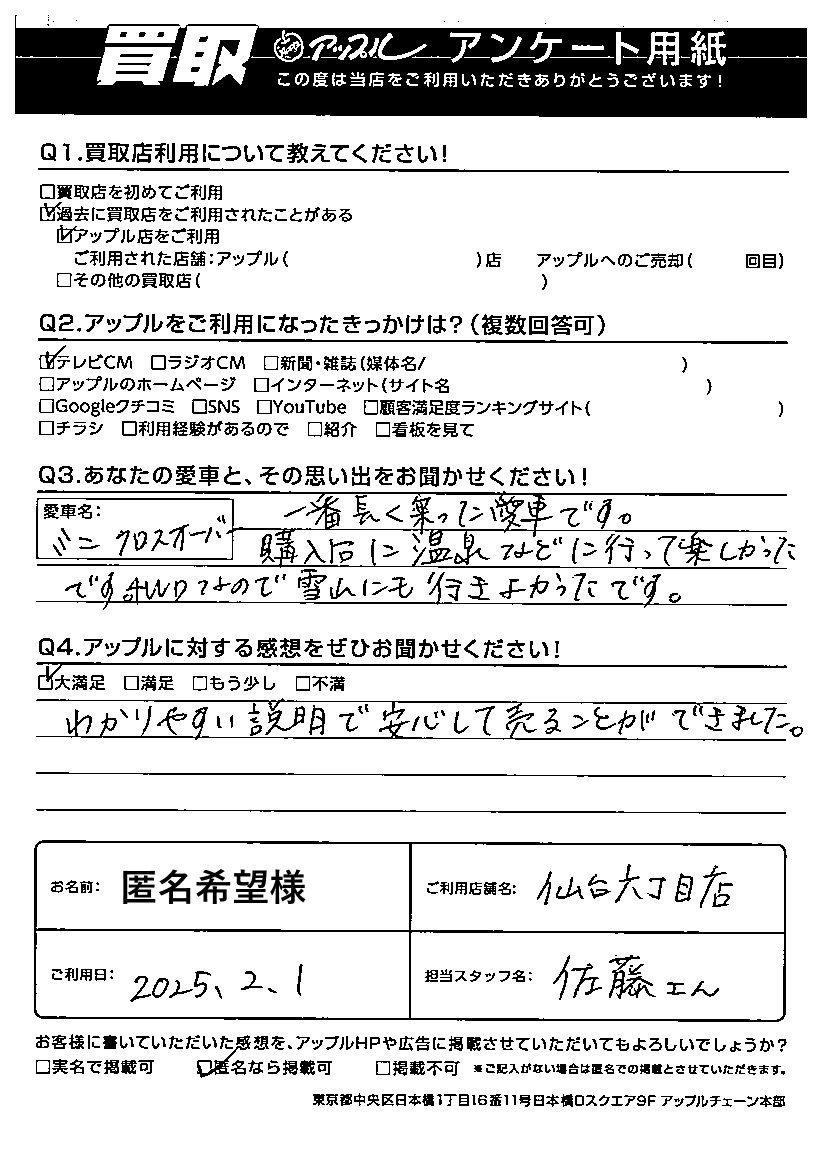 買取 アップル アンケート用紙
この度は当店をご利用いただきありがとうございます!
Q1.買取店利用について教えてください!
□買取店を初めてご利用
☑過去に買取店をご利用されたことがある
☑アップル店をご利用
ご利用された店舗:アップル( )店 アップルへのご売却( 回目)
□その他の買取店( )
Q2.アップルをご利用になったきっかけは?(複数回答可)
☑テレビCM □ラジオCM □新聞・雑誌(媒体名/ )
□アップルのホームページ □インターネット(サイト名 )
□Googleクチコミ □SNS □YouTube □顧客満足度ランキングサイト( )
□チラシ □利用経験があるので □紹介 □看板を見て
Q3.あなたの愛車と、その思い出をお聞かせください!
愛車名: 一番長く乗った愛車です。
ミニ クロスオーバー 購入后に温泉などに行って楽しかった
です。AWDなので雪山にも行きよかったです。
Q4.アップルに対する感想をぜひお聞かせください!
☑大満足 □満足 □もう少し □不満
わかりやすい説明で安心して売ることができました。
お名前: 匿名希望様 ご利用店舗名: 仙台六丁目店
ご利用日: 2025、2、1 担当スタッフ名: 佐藤さん
お客様に書いていただいた感想を、アップルHPや広告に掲載させていただいてもよろしいでしょうか?
□実名で掲載可 ☑匿名なら掲載可 □掲載不可 ※ご記入がない場合は匿名での掲載とさせていただきます。
東京都中央区日本橋1丁目16番11号日本橋Dスクエア9F アップルチェーン本部